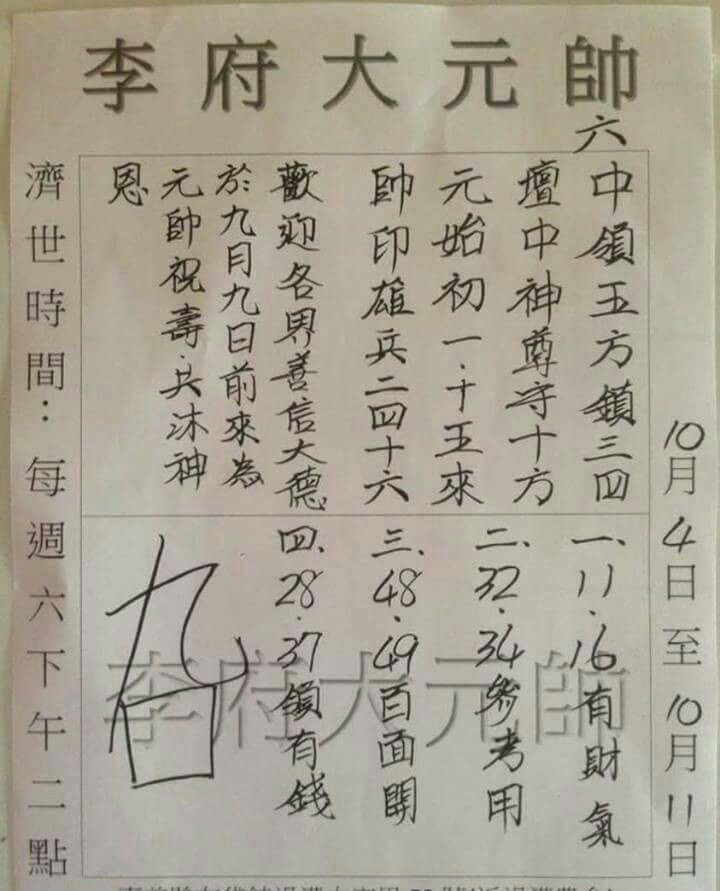 李府大元帥
10月4日至10月11日
六中領五方鎮三四
壇中神尊守十方
元始初一.十五來
帥印雄兵二四十六
歡迎各界善信大德
於九月九日前來為
元帥祝壽.共沐神
恩
一、11.16有財氣
二、32.34參考用
三、48.49百面開
四、28.37領有錢
九
李府大元帥
濟世時間：每週六下午二點